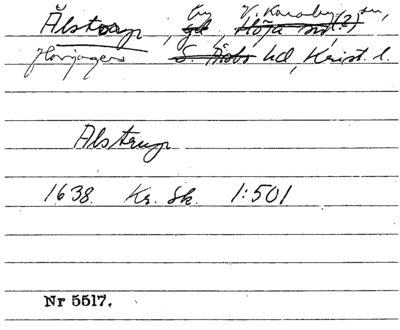 by V. Karaby sn,
Ålstorp, gd, Höja sn(?)
Norrjagers S. Åsbo hd, Krist. l.
Alstrup
1638. Kr. Sk. 1:501
Nr 5517.